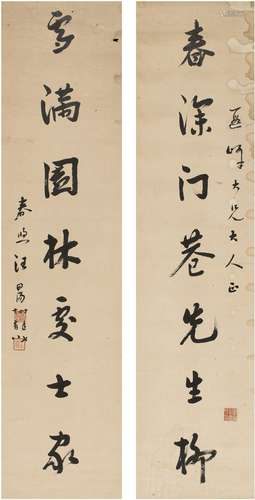 春深门巷先生柳
峰大兄大人正
雪满园林处士家
春煦汪